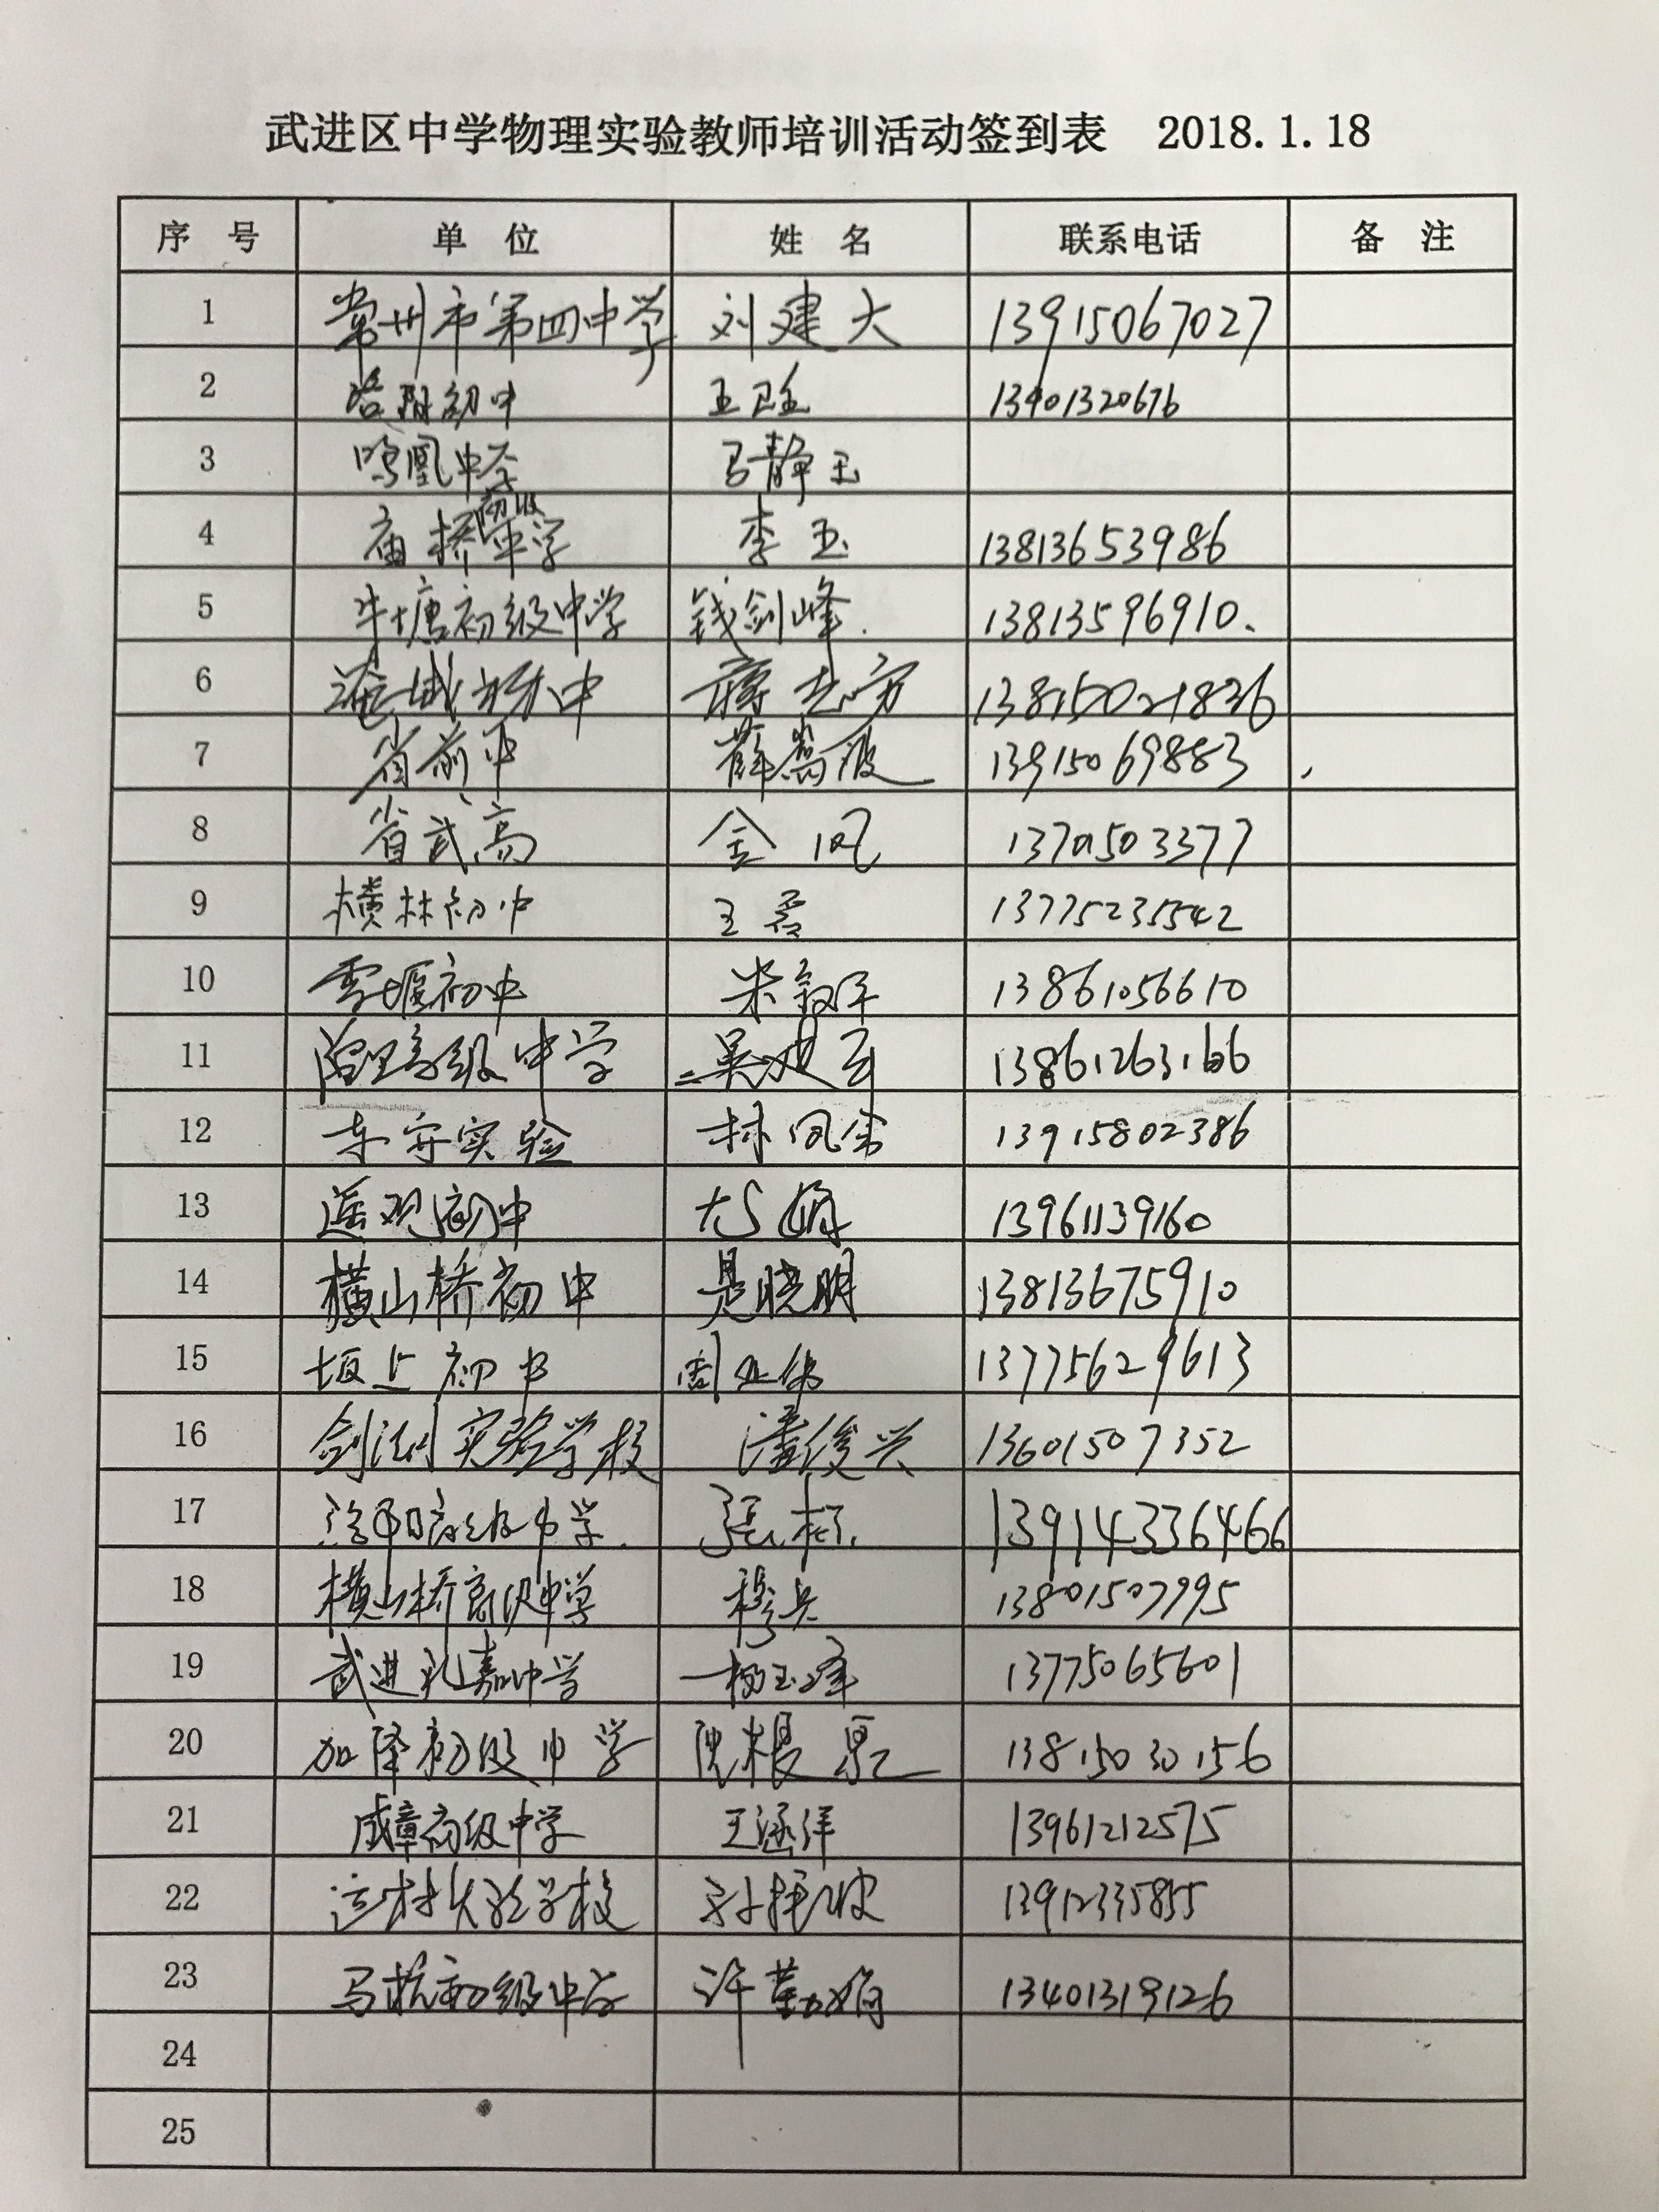 武进区中学物理实验教师培训活动签到表 2018.1.18
序 号 单 位 姓 名 联系电话 备 注
1 常州市第四中学 刘建大 13915067027
2 洛阳初中 王 13401320676
3 鸣凰中学 马静玉
4 庙桥初级中学 李玉 13813653986
5 牛塘初级中学 钱剑峰. 13813596910、
6 淹城初中 蒋志方 13815021836
7 省前中 薛嵩波 13915069883
8 省武高 金凤 13701503377
9 横林初中 王 13775235542
10 雪堰初中 朱 13861056610
11 高级中学 吴 13861263166
12 东安实验 林凤 13915802386
13 遥观初中 尤娟 13961139160
14 横山桥初中 是晓明 13813675910
15 坂上初中 周 13775629613
16 剑湖实验学校 潘俊兴 13601507352
17 洛阳高级中学. 张栋. 13914336466
18 横山桥高级中学 穆兵 13801507995
19 武进礼嘉中学 杨玉峰 13775065601
20 加泽初级中学 倪根 13815030156
21 成章高级中学 王涵洋 13961212575
22 运村实验学校 孙 13912335855
23 马杭初级中学 许勤娟 13401319126
24
25